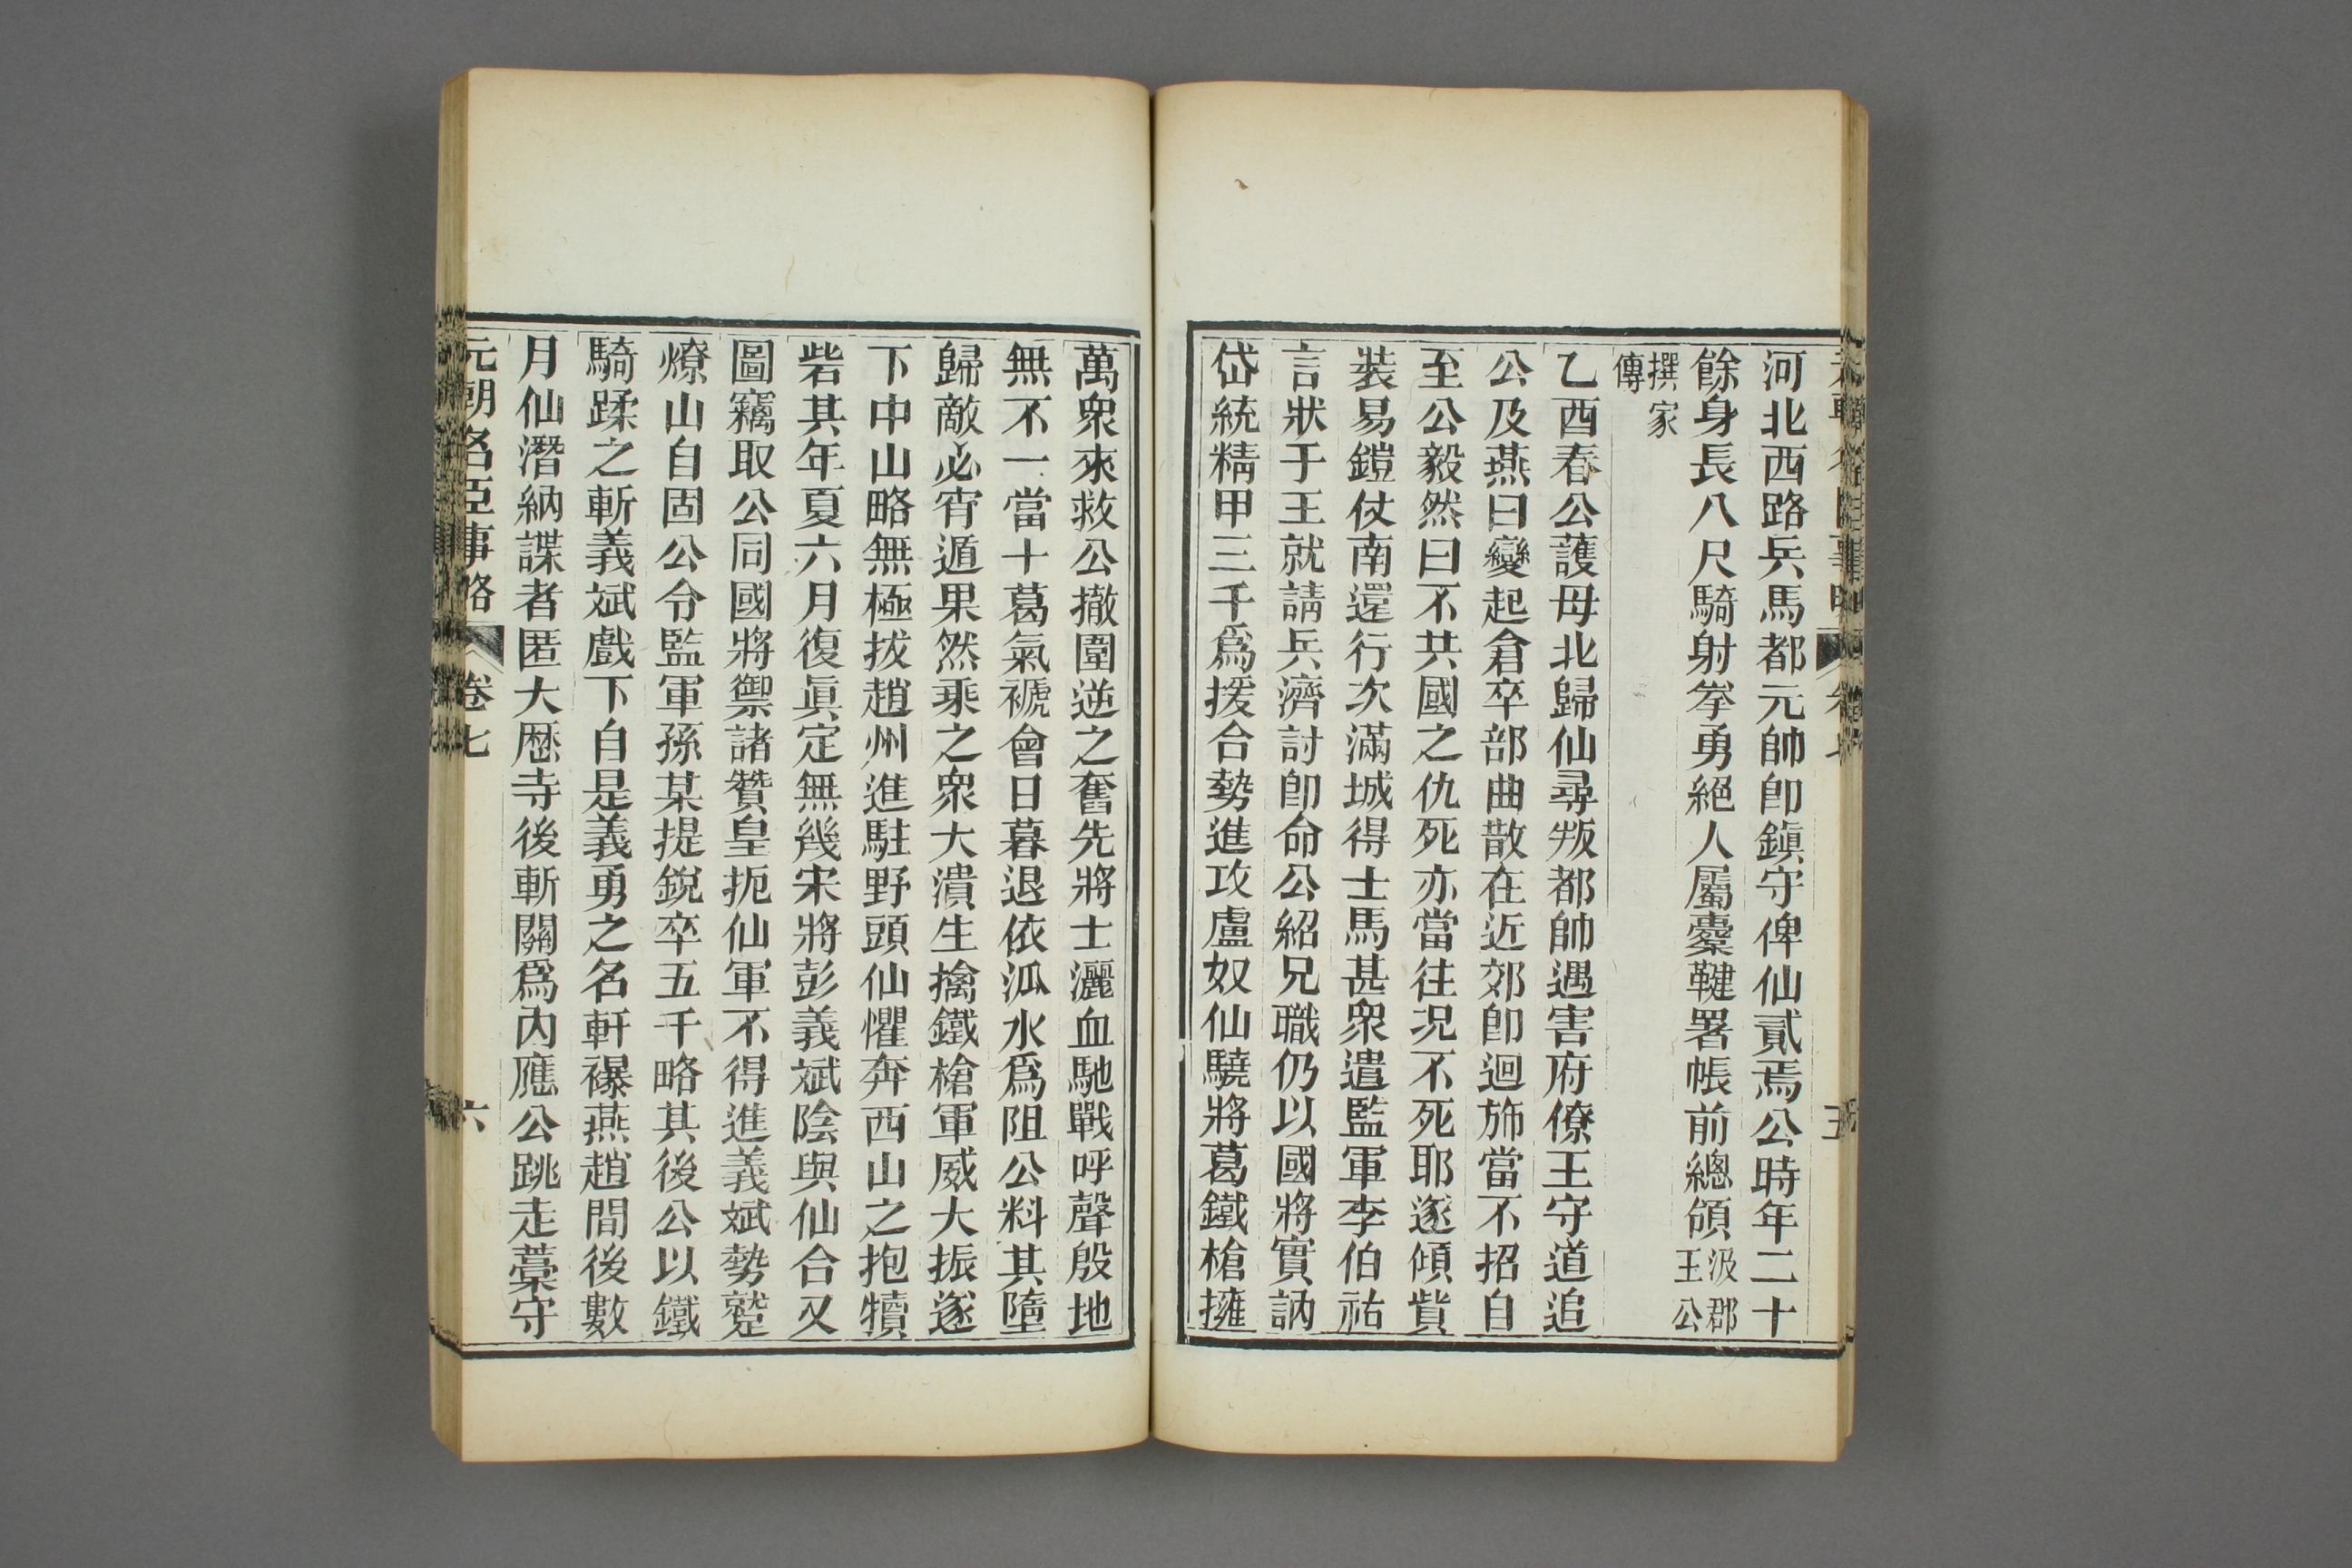 河北西路兵馬都元帥卽鎭守俾仙貳焉公時年二十
餘身長八尺騎射拳勇絕人屬櫜鞬署帳前總領汲郡王公
撰家傳
乙酉春公護母北歸仙尋叛都帥遇害府僚王守道追
公及燕曰變起倉卒部曲散在近郊卽迴斾當不招自
至公毅然曰不共國之仇死亦當往況不死耶遂傾貲
裝易鎧仗南還行次滿城得士馬甚衆遣監軍李伯祐
言狀于王就請兵濟討卽命公紹兄職仍以國將實訥
岱統精甲三千爲援合勢進攻盧奴仙驍將葛鐵槍擁
萬衆來救公撤圍逆之奮先將士灑血馳戰呼聲殷地
無不一當十葛氣褫會日暮退依泒水爲阻公料其墮
歸敵必宵遁果然乘之衆大潰生擒鐵槍軍威大振遂
下中山略無極拔趙州進駐野頭仙懼奔西山之抱犢
砦其年夏六月復眞定無幾宋將彭義斌陰與仙合又
圖竊取公同國將禦諸贊皇扼仙軍不得進義斌勢蹙
燎山自固公令監軍孫某提銳卒五千略其後公以鐵
騎蹂之斬義斌戲下自是義勇之名軒襮燕趙間後數
月仙潛納諜者匿大歷寺後斬關爲內應公跳走藁守
元朝名臣事略
卷七
六